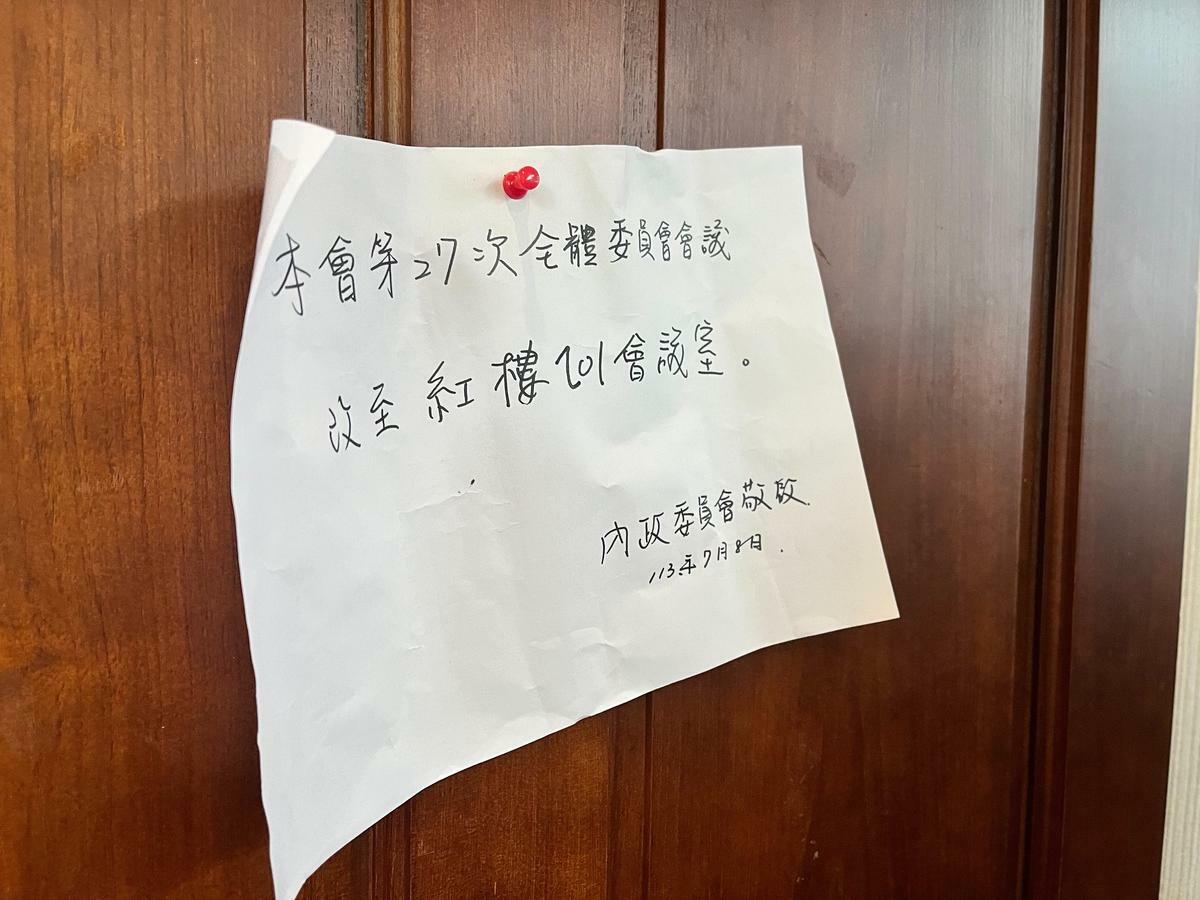 本會第27次全體委員會會議
改至紅樓101會議室。
內政委員會敬啟
113年7月8日.